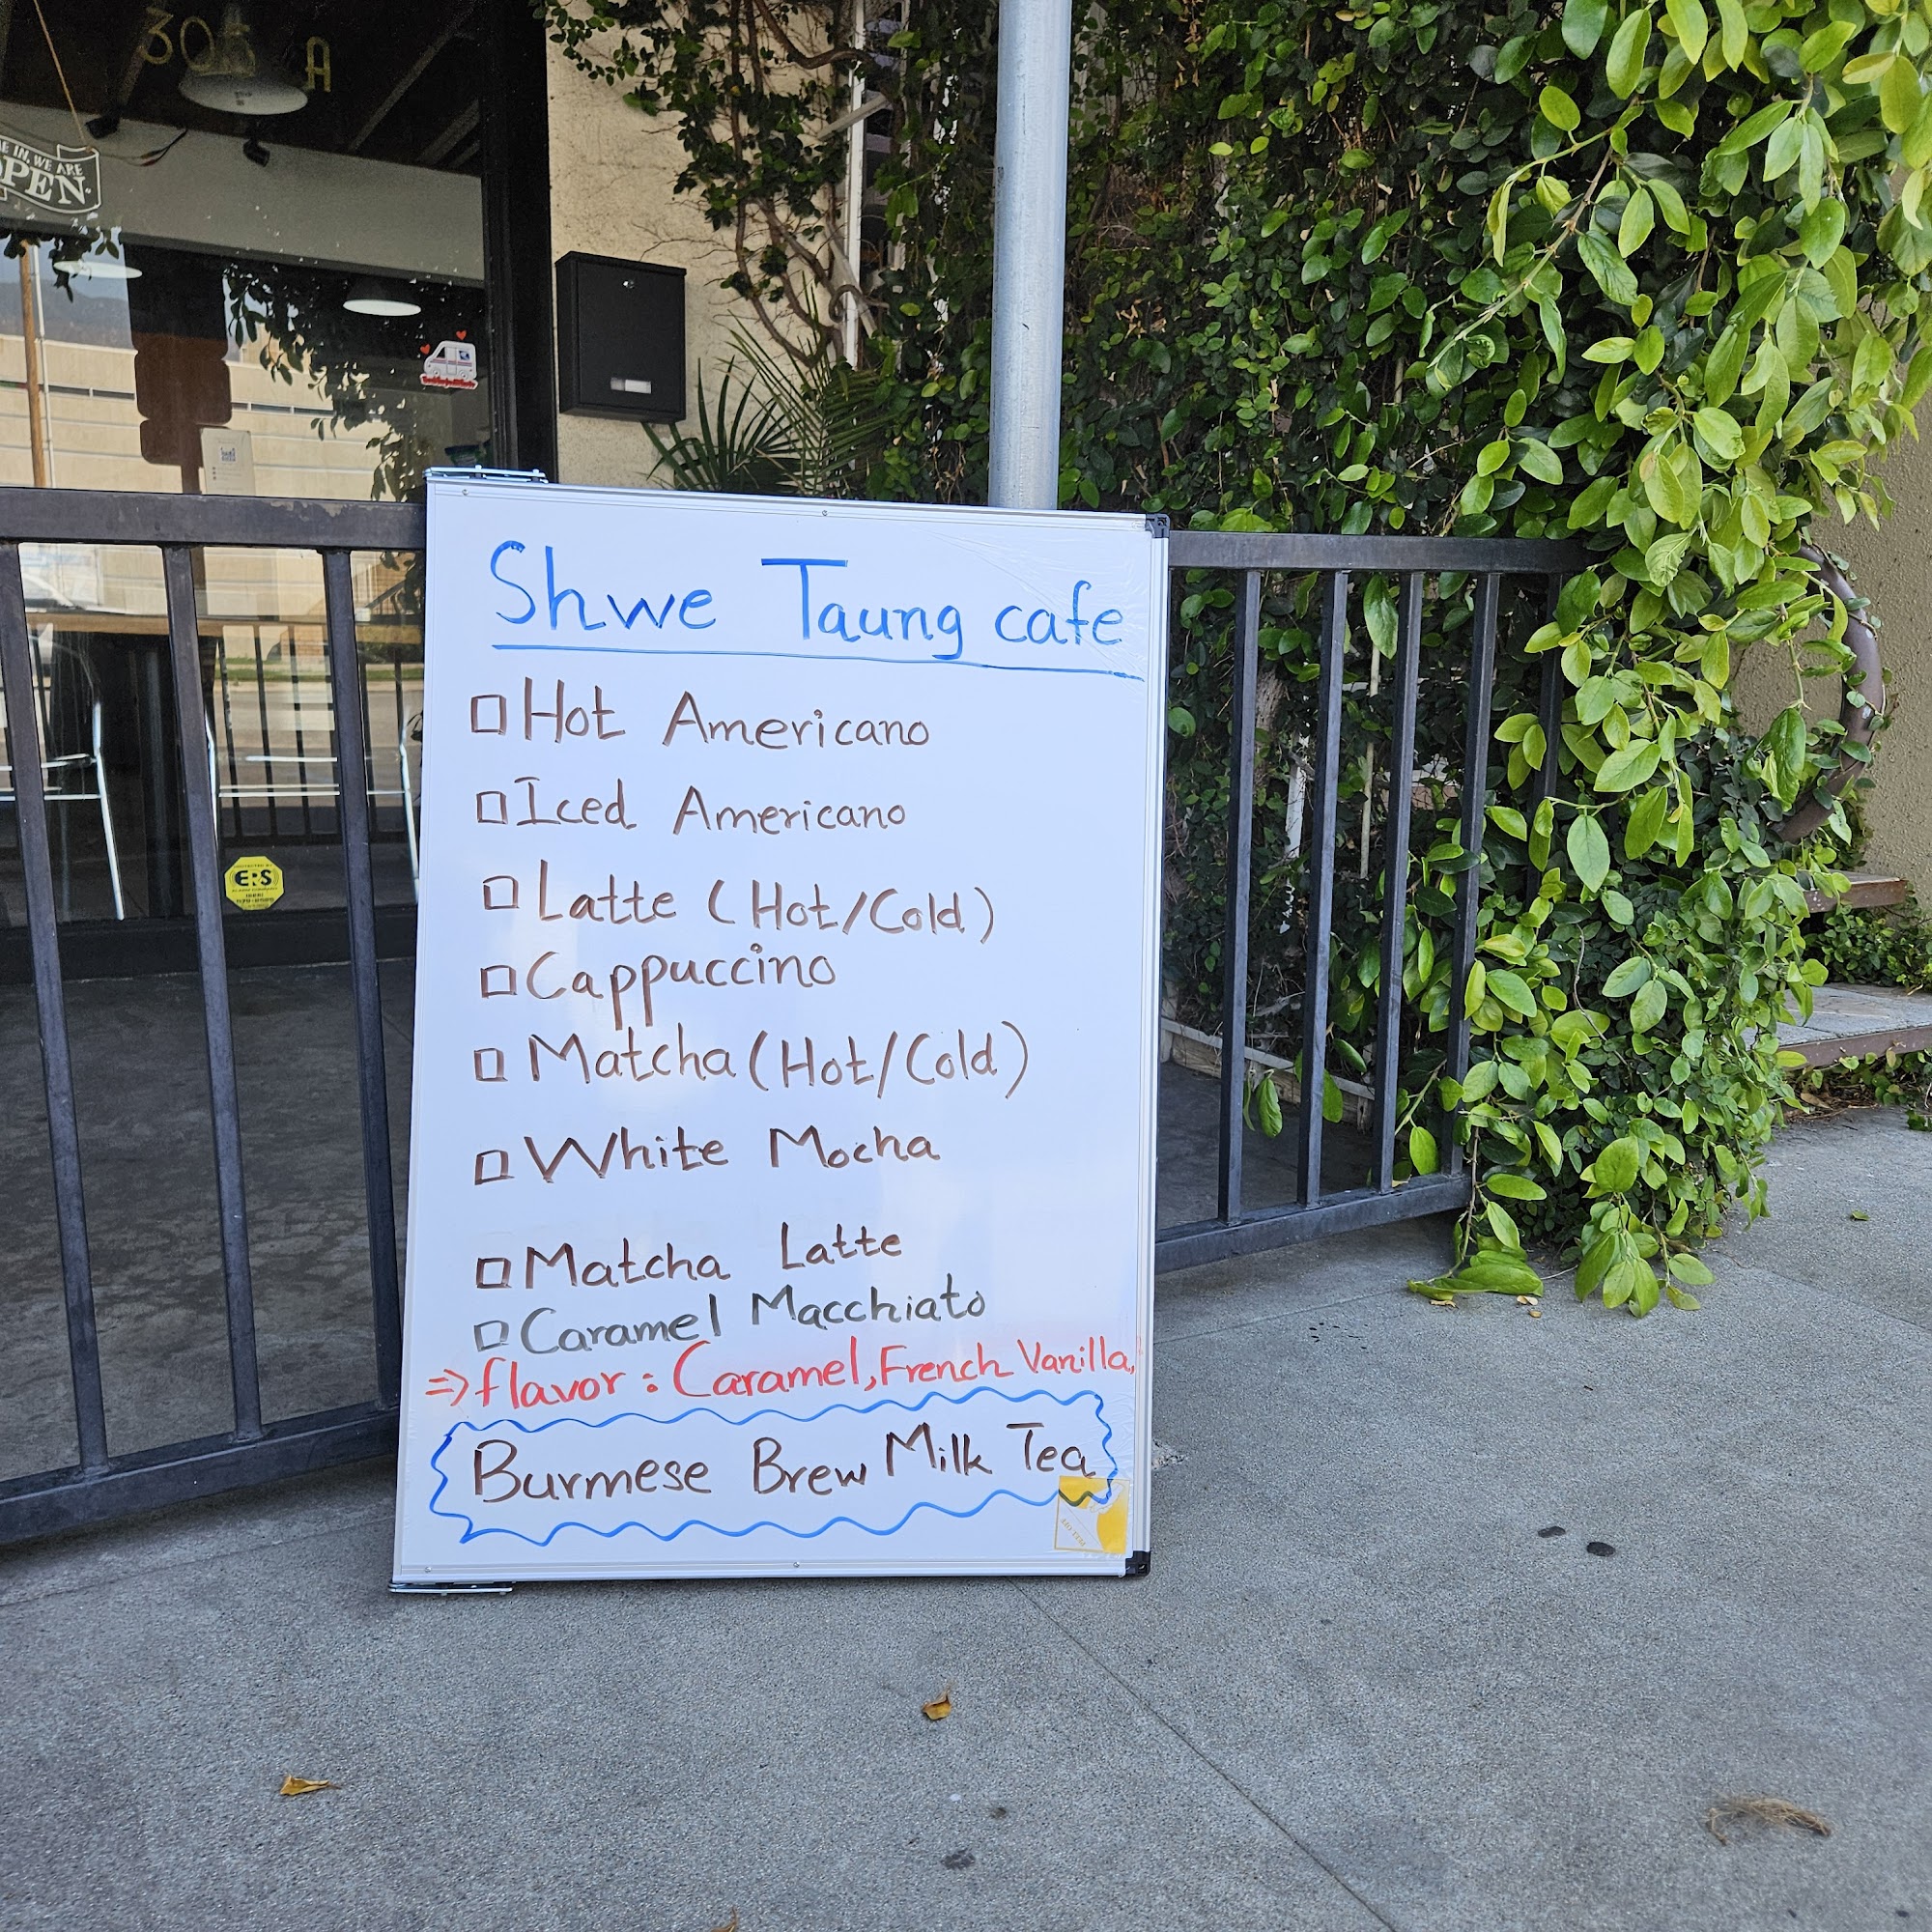 305 A
E IN, WE ARE
OPEN
Shwe Taung cafe
Hot Americano
Iced Americano
Latte (Hot/Cold)
Cappuccino
Matcha (Hot/Cold)
White Mocha
Matcha Latte
Caramel Macchiato
⇒ flavor : Caramel, French Vanilla,
Burmese Brew Milk Tea